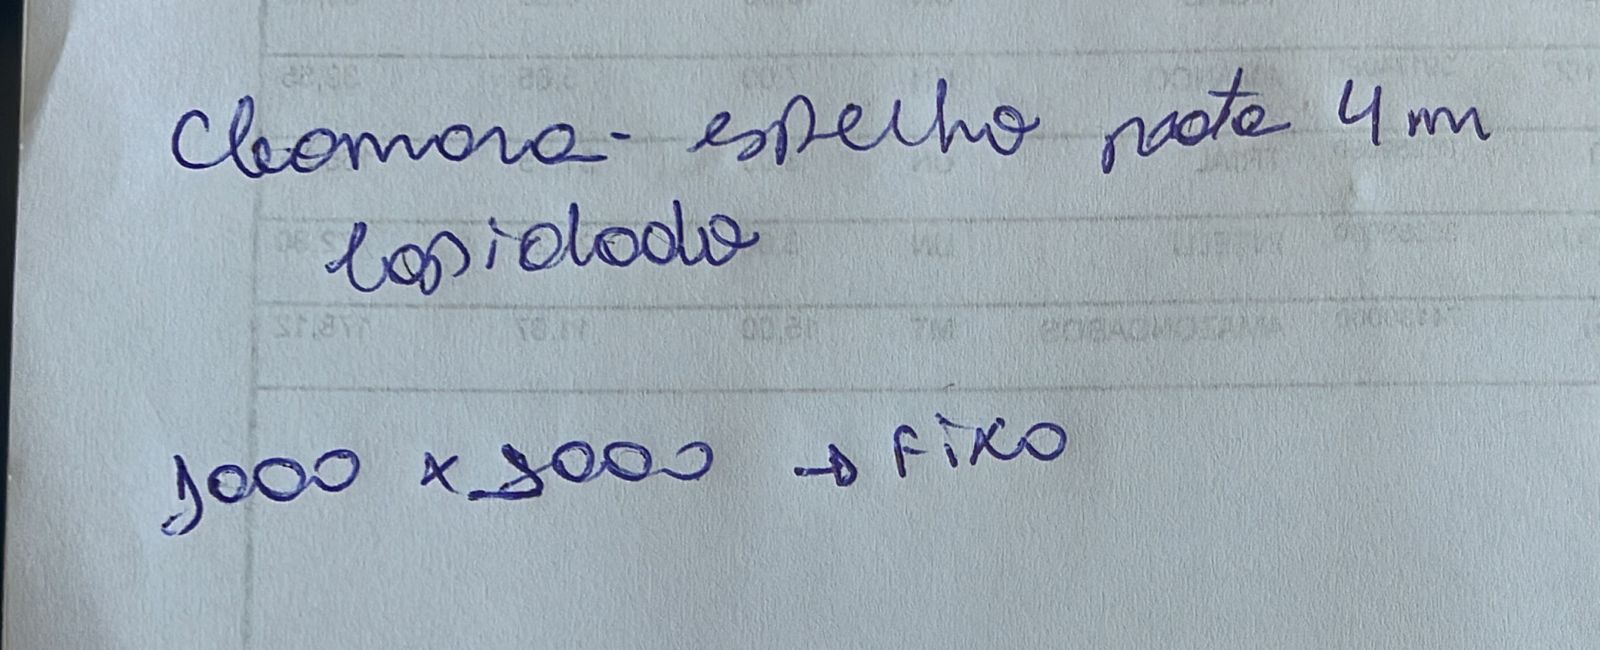 Cleomara - espelho prata 4 mm
lapidado
1000 x 1000 → Fixo